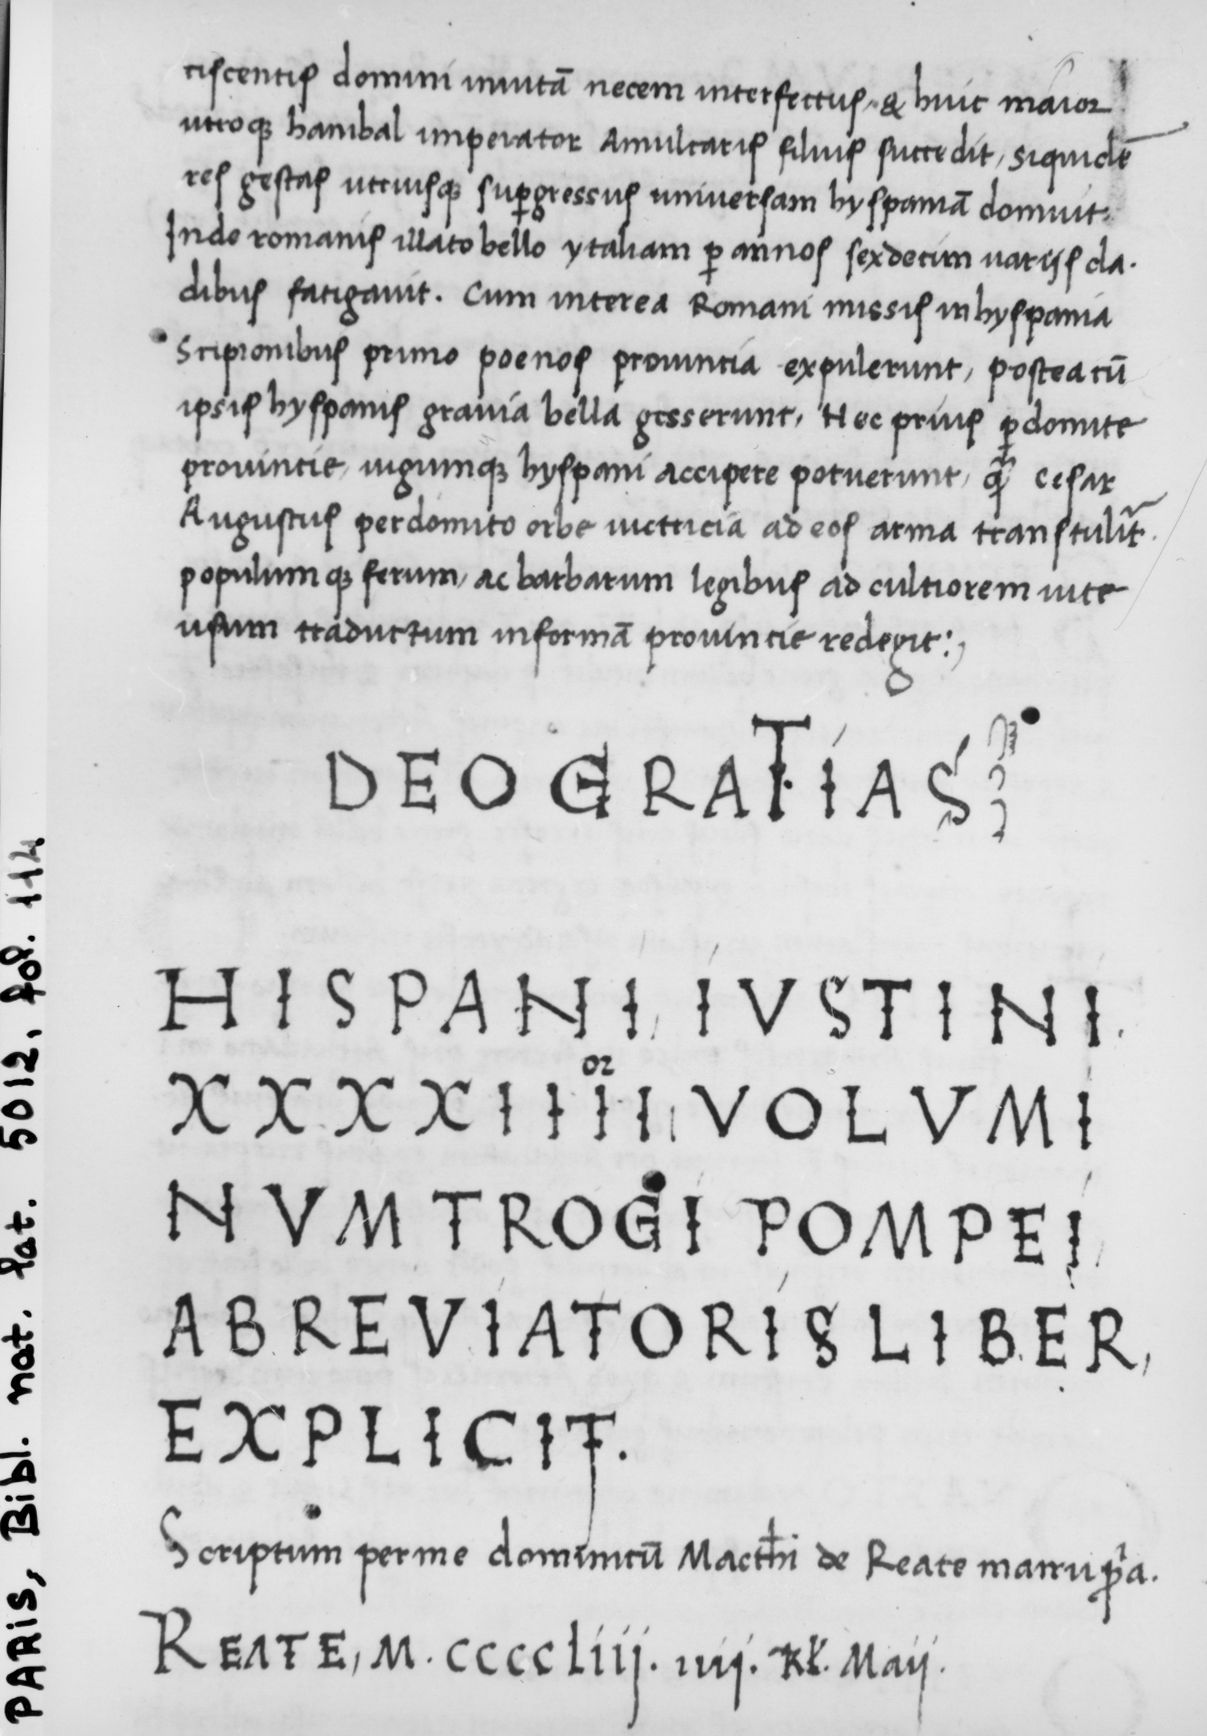 ciscentis domini invitā necem interfectus, & huic maior
utroq; hanibal imperator Amilcaris filius succedit, siquidē
res gestas utriusq; supgressus universam hyspaniā domuit.
Inde romanis illato bello ytaliam p annos sexdecim variis cla.
dibus fatigavit. Cum interea Romani missis in hyspania
Scipionibus primo poenos provintia expulerunt, postea cū
ipsis hyspanis gravia bella gesserunt, Nec prius pdomite
provintie, iugiumq; hyspani accipere potuerunt, q̄ Cesar
Augustus perdomito orbe victricia ad eos arma transtulit.
populumq; ferum, ac barbarum legibus ad cultiorem vite
usum traductum in formā provintie redegit:,
DEO GRATIAS
HISPANI, IVSTINI.
XXXXIIII or VOLVMI
NVM TROGI POMPEI,
ABREVIATORIS LIBER,
EXPLICIT.
Scriptum per me dominicū Macthi de Reate manu p͛a.
REATE, M. CCCCliij. iiij. Kł. Maij.
PARIS, Bibl. nat. lat. 5012, fol. 114